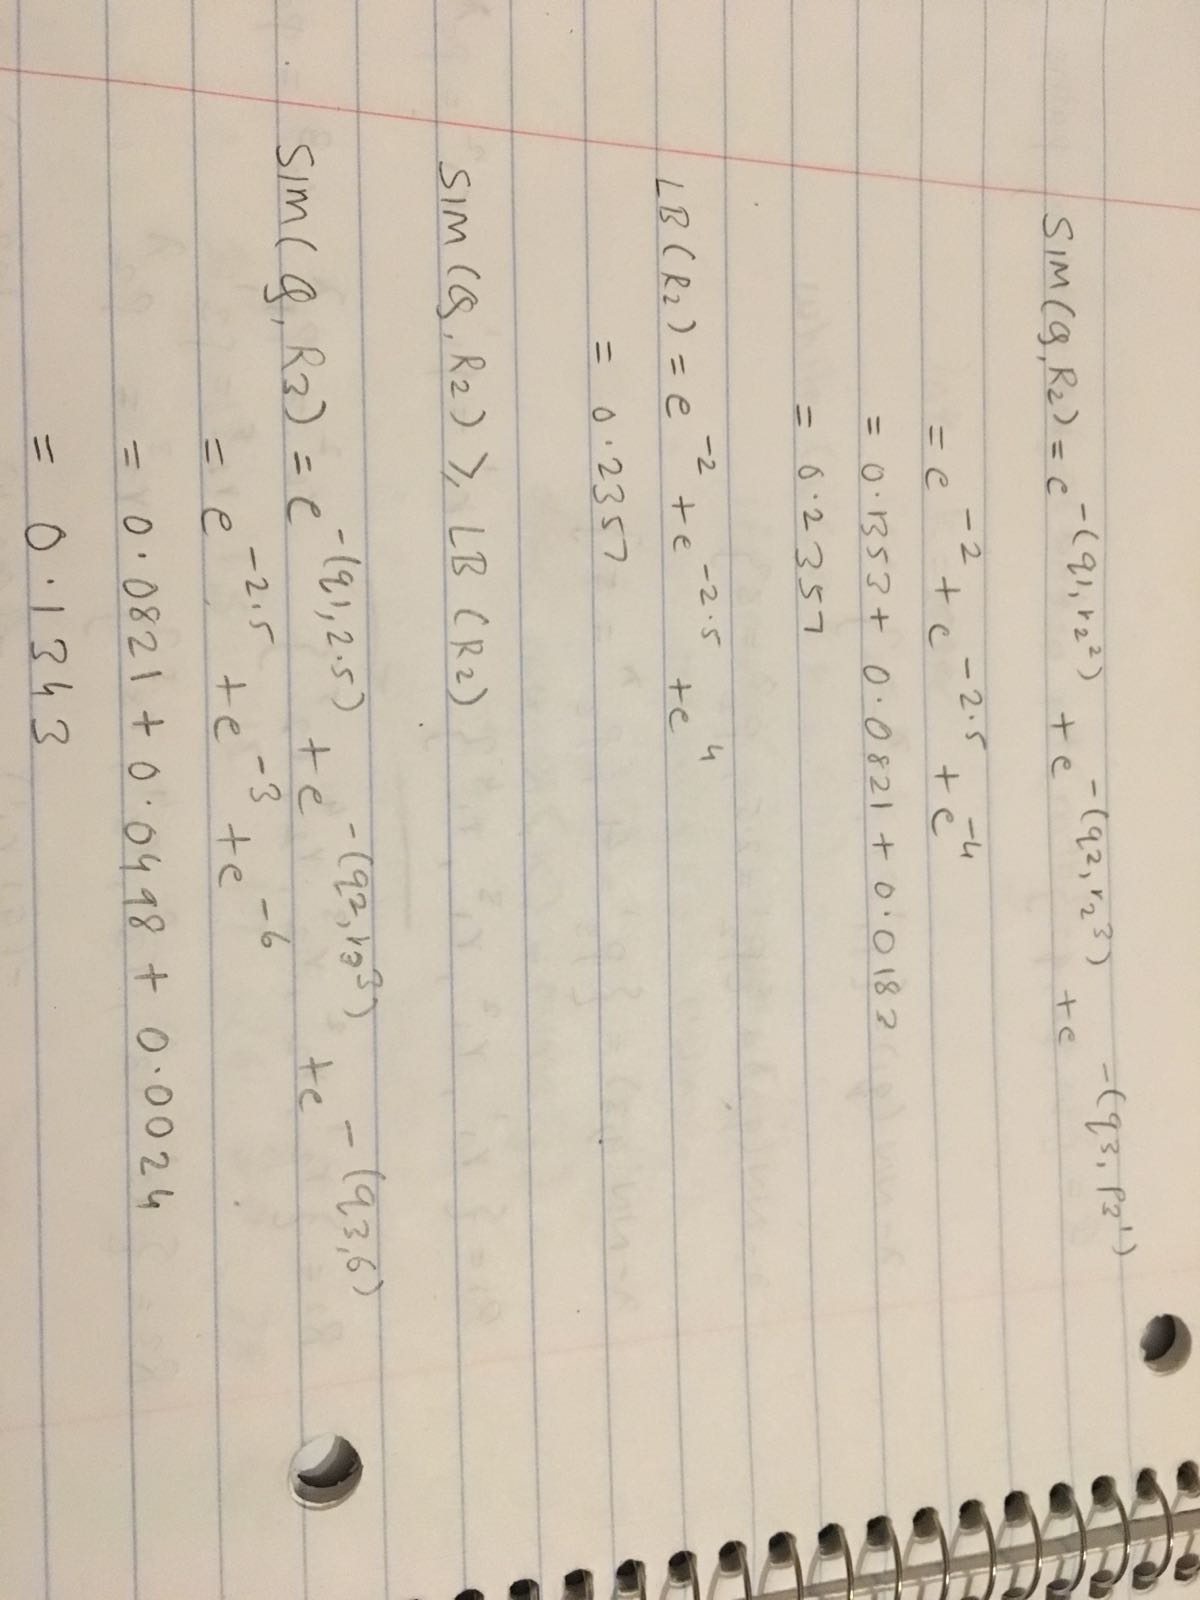 SIM(Q,R2) = e^-(q1,r2²) + e^-(q2,r2³) + e^-(q3,P2¹)
= e^-2 + e^-2.5 + e^-4
= 0.1353 + 0.0821 + 0.0183
= 0.2357
LB(R2) = e^-2 + e^-2.5 + e^4
= 0.2357
SIM(Q,R2) ≥ LB(R2)
SIM(Q,R3) = e^-(q1,2.5) + e^-(q2,r3³) + e^-(q3,6)
= e^-2.5 + e^-3 + e^-6
= 0.0821 + 0.0498 + 0.0024
= 0.1343